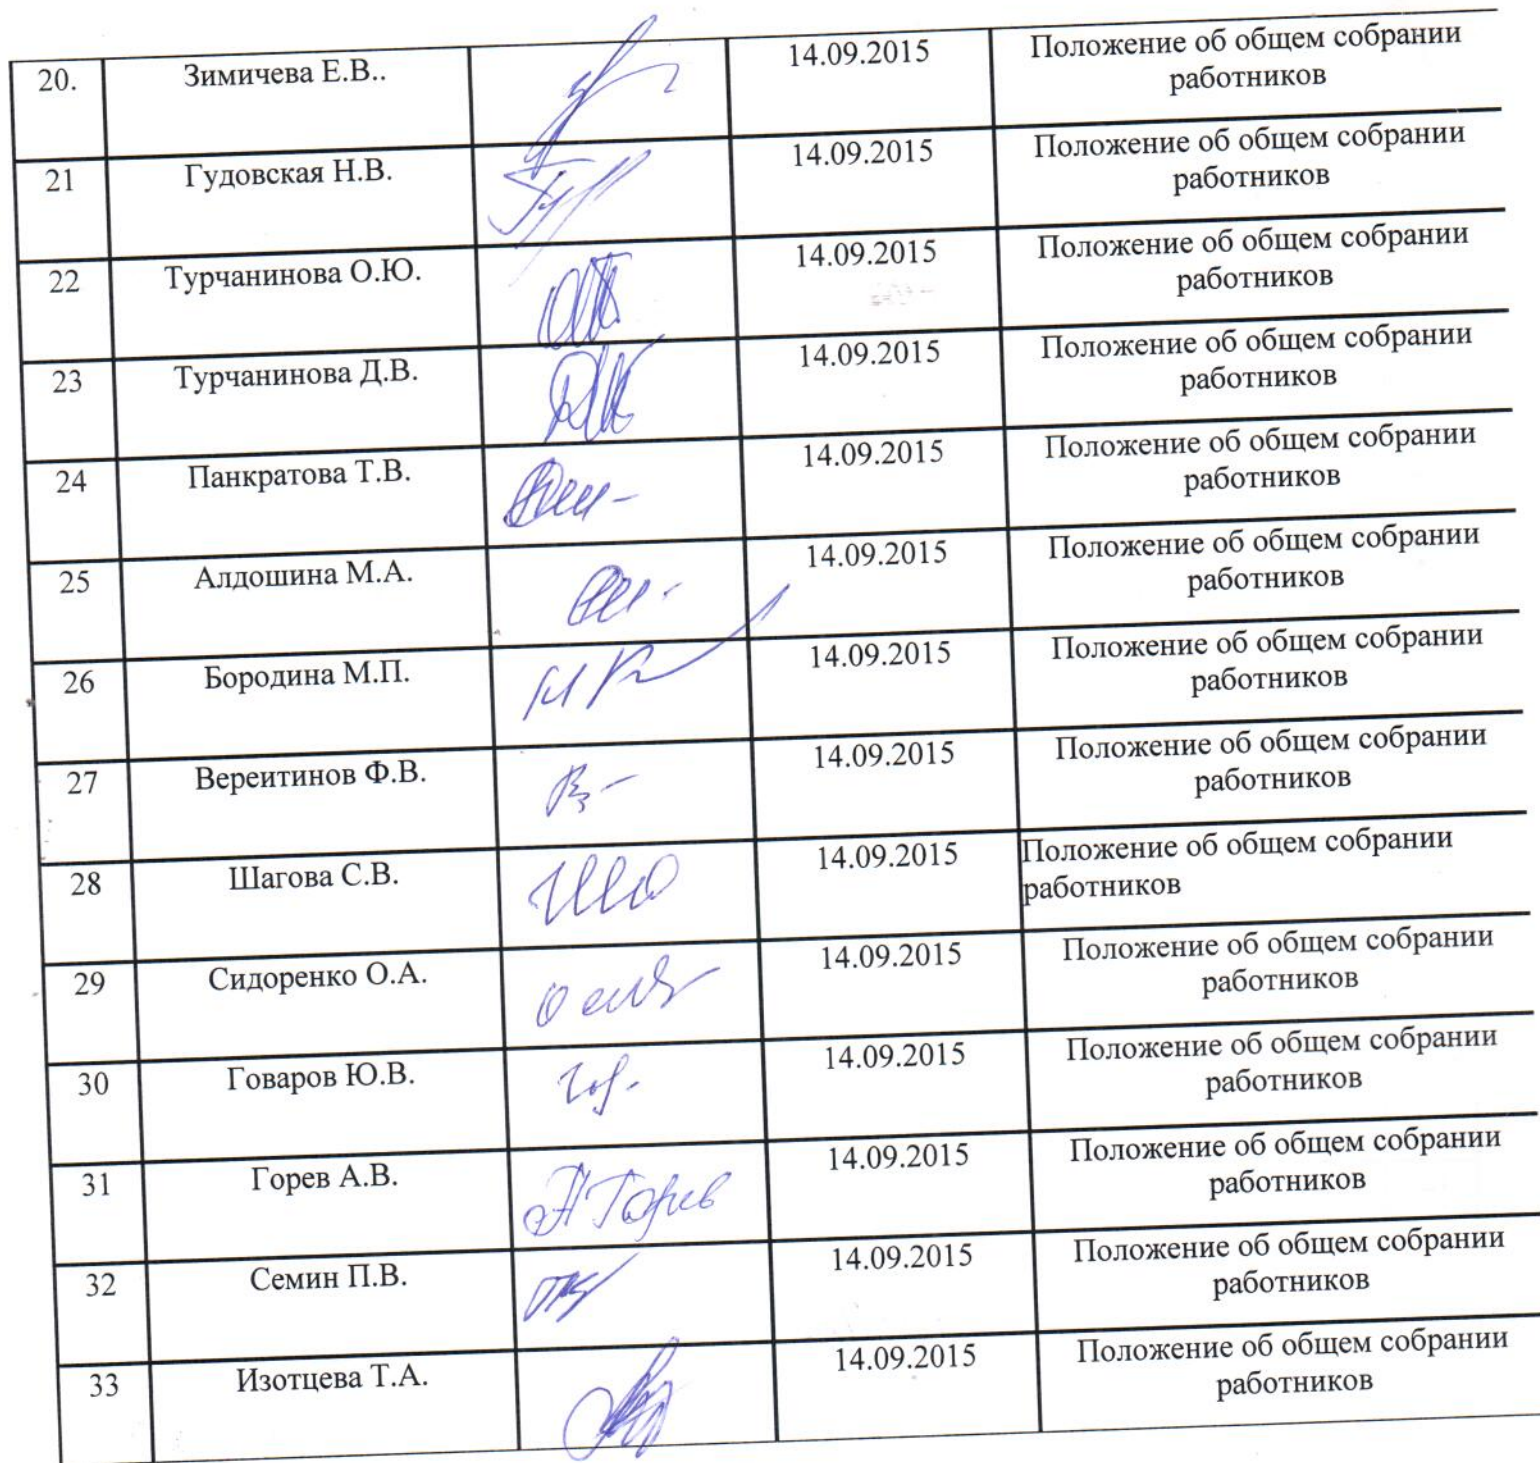 20. Зимичева Е.В.. 14.09.2015 Положение об общем собрании
работников
21 Гудовская Н.В. 14.09.2015 Положение об общем собрании
работников
22 Турчанинова О.Ю. 14.09.2015 Положение об общем собрании
работников
23 Турчанинова Д.В. 14.09.2015 Положение об общем собрании
работников
24 Панкратова Т.В. 14.09.2015 Положение об общем собрании
работников
25 Алдошина М.А. 14.09.2015 Положение об общем собрании
работников
26 Бородина М.П. 14.09.2015 Положение об общем собрании
работников
27 Вереитинов Ф.В. 14.09.2015 Положение об общем собрании
работников
28 Шагова С.В. 14.09.2015 Положение об общем собрании
работников
29 Сидоренко О.А. 14.09.2015 Положение об общем собрании
работников
30 Говаров Ю.В. 14.09.2015 Положение об общем собрании
работников
31 Горев А.В. А Горев 14.09.2015 Положение об общем собрании
работников
32 Семин П.В. 14.09.2015 Положение об общем собрании
работников
33 Изотцева Т.А. 14.09.2015 Положение об общем собрании
работников